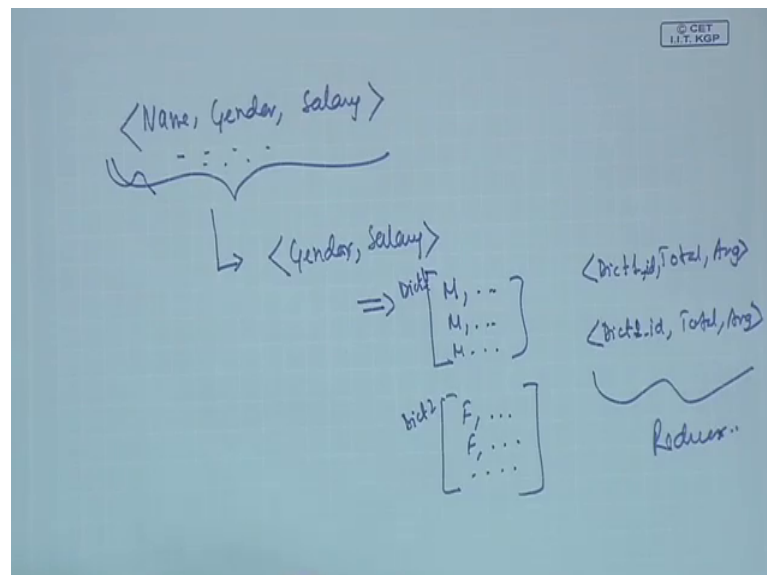 © CET
I.I.T. KGP
<Name, Gender, Salary>
<Gender, Salary>
⇒ Dict1 [ M, ...
M, ...
M ... ]
Dict2 [ F, ...
F, ...
.... ]
<Dict1_id, Total, Avg>
<Dict2-id, Total, Avg>
Reducer..